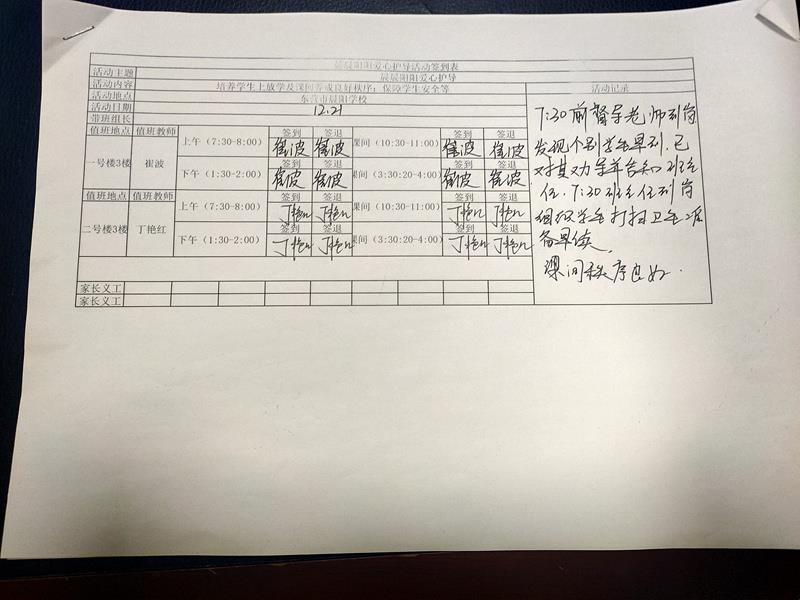 晨晨阳阳爱心护导活动签到表
活动主题 晨晨阳阳爱心护导
活动内容 培养学生上放学及课间养成良好秩序；保障学生安全等 活动记录
活动地点 东莞市晨阳学校
活动日期 12.21
带班组长
值班地点 值班教师 上午（7:30-8:00） 签到 签退 课间（10:30-11:00） 签到 签退
崔波 崔波 崔波 崔波
一号楼3楼 崔波 下午（1:30-2:00） 签到 签退 课间（3:30:20-4:00） 签到 签退
崔波 崔波 崔波 崔波
值班地点 值班教师 上午（7:30-8:00） 签到 签退 课间（10:30-11:00） 签到 签退
丁艳红 丁艳红 丁艳红 丁艳红
二号楼3楼 丁艳红 下午（1:30-2:00） 签到 签退 课间（3:30:20-4:00） 签到 签退
丁艳红 丁艳红 丁艳红 丁艳红
家长义工
家长义工
7:30前督导老师到岗
发现个别学生早到.已
对其劝导并告知班主
任.7:30班主任到岗
组织学生打扫卫生准
备早读.
课间秩序良好.